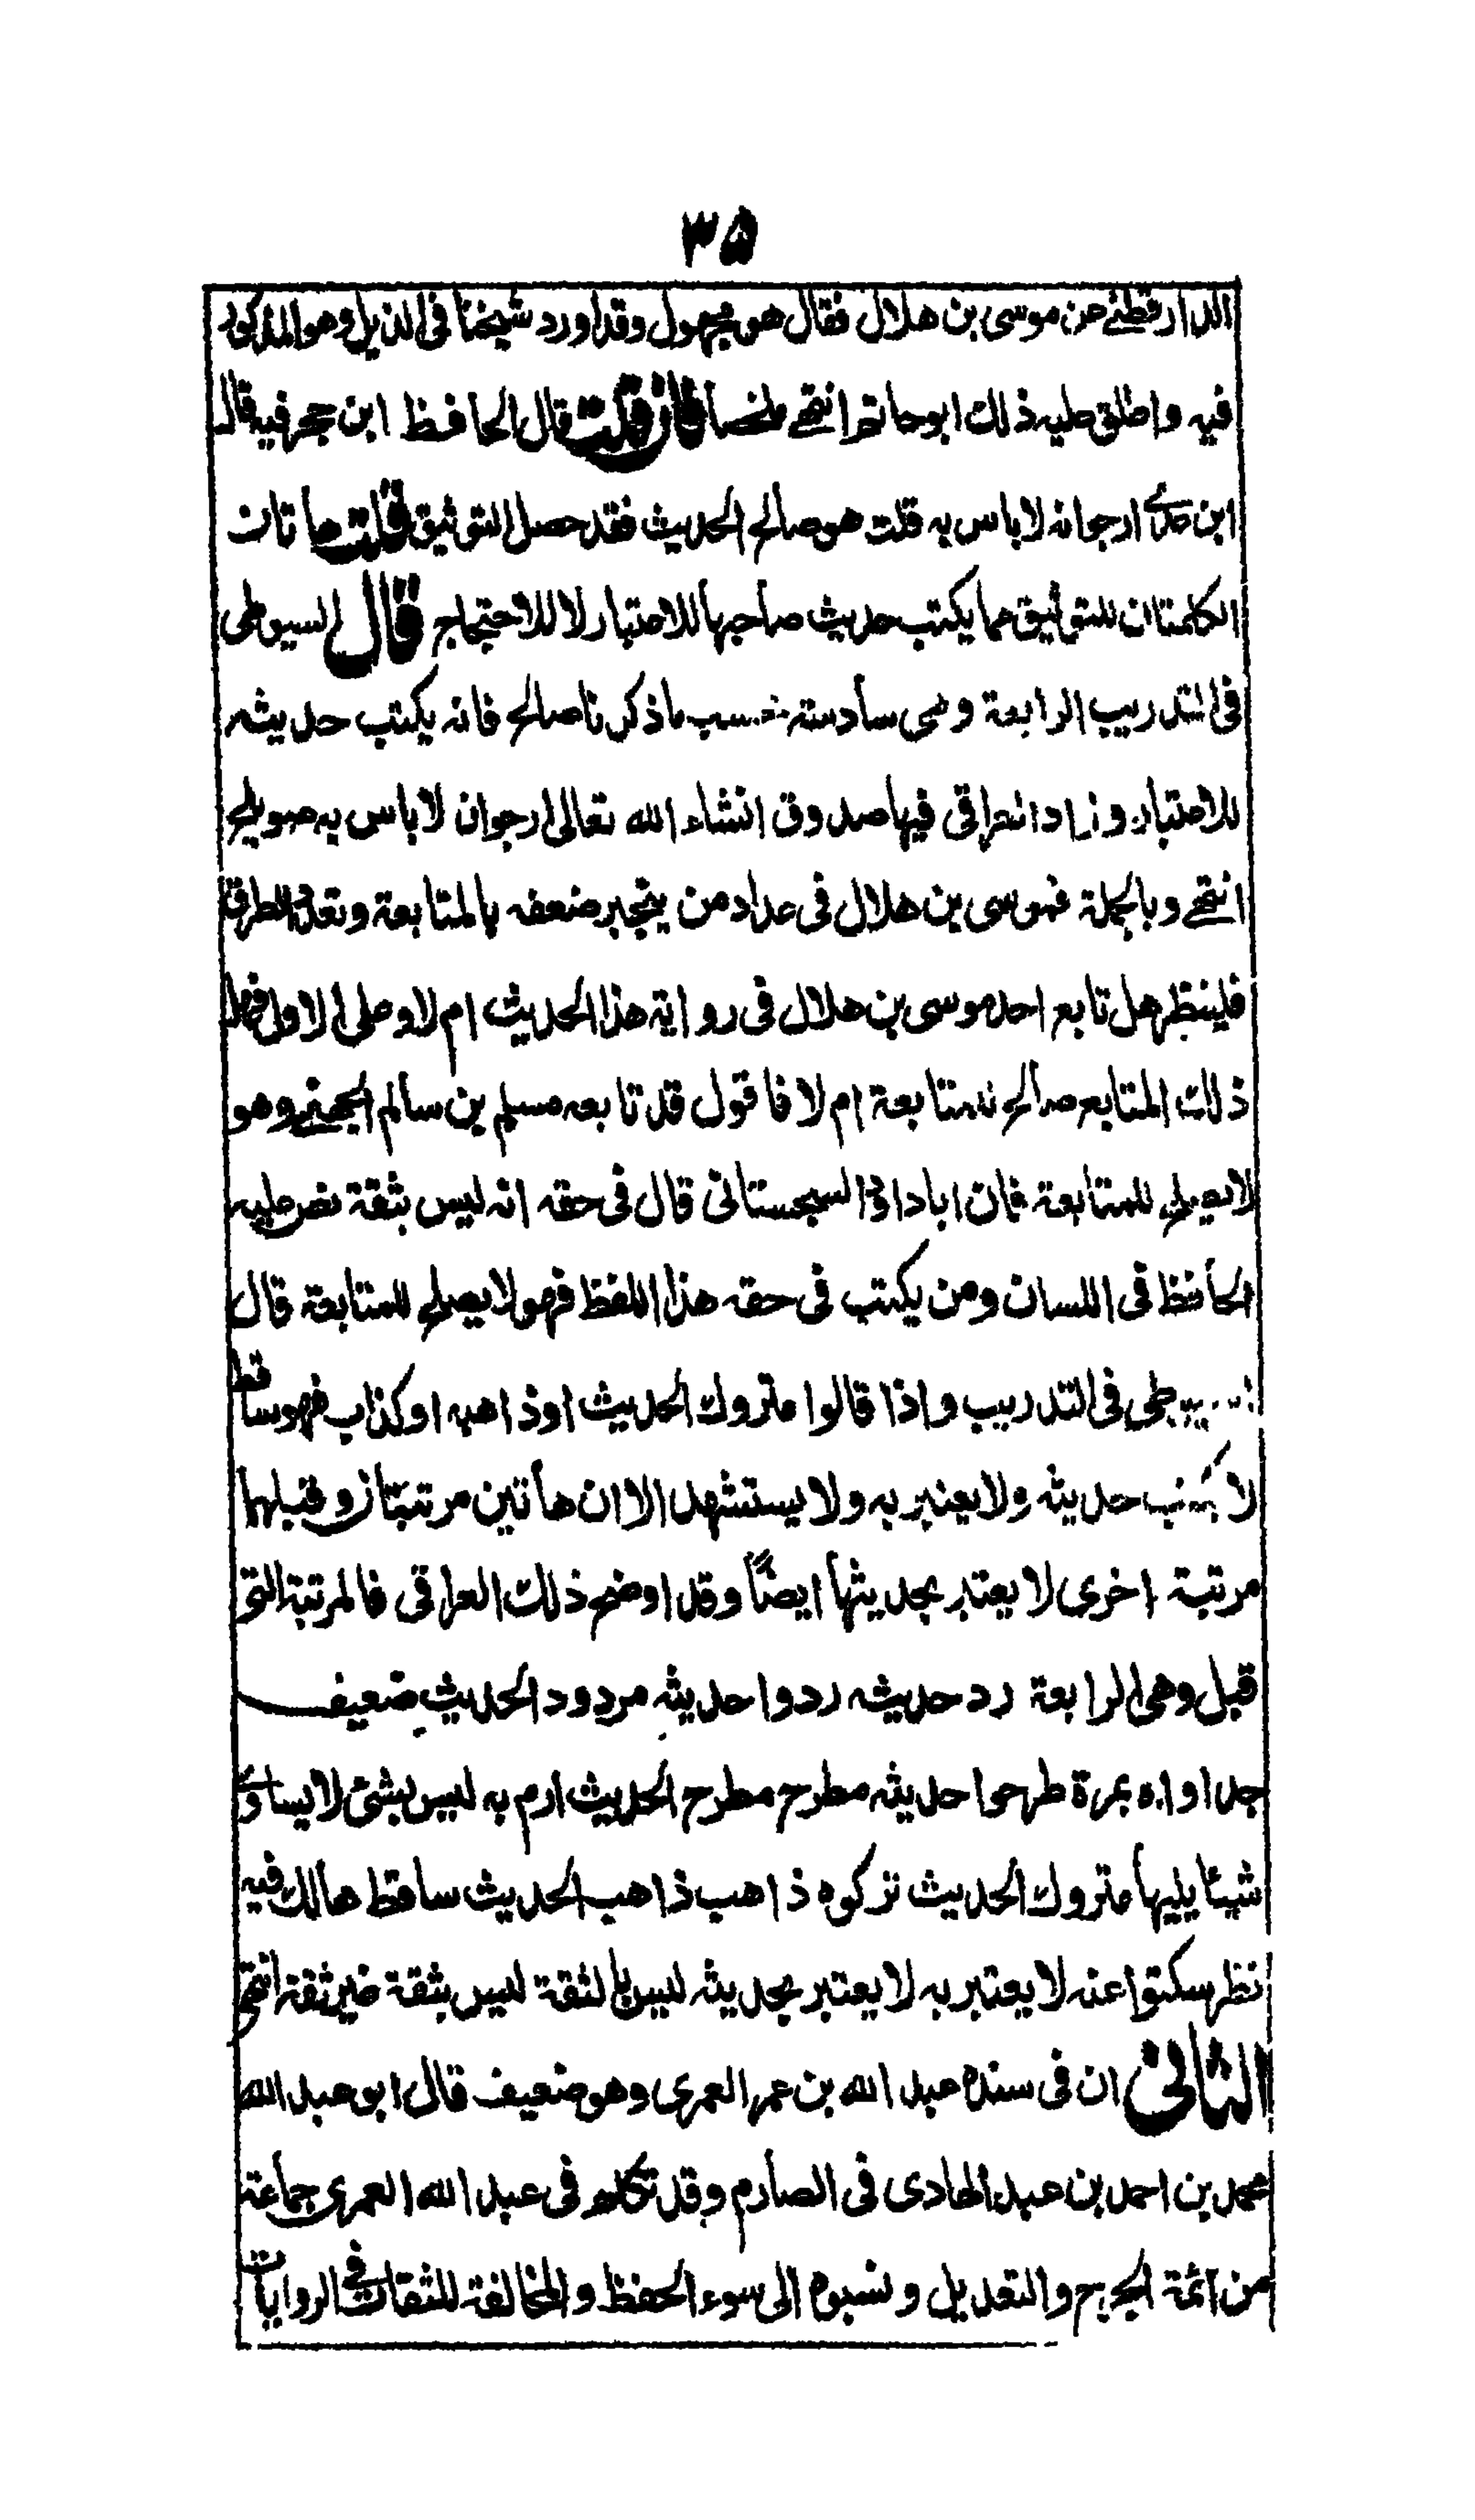 ٣٥
الدارقطني عن موسى بن هلال فقال هو مجهول وقد اورد شيخنا في الذيل وهو المذكور
فيه واطلق عليه ذلك ابو حاتم انتهى ملخصا فان قلت قال الحافظ ابن حجر فيه قال
ابن عدي ارجو انه لا باس به قلت هو صالح الحديث فقد حصل التوثيق قلت هاتان
الكلمتان للتوثيق مما يكتب حديث صاحبها للاعتبار لا للاحتجاج قال السيوطى
فى التدريب الرابعة وهى سادسة بحسب ما ذكرنا صالح فانه يكتب حديثه
للاعتبار وزاد العراقى فيها صدوق انشاء الله تعالى ارجو ان لا باس به صويلح
انتهى وبالجملة فموسى بن هلال فى عداد من ينجبر ضعفه بالمتابعة وتعدد الطرق
فلينظر هل تابع احد موسى بن هلال فى رواية هذا الحديث ام لا وعلى الاول فهل
ذلك المتابع صالح للمتابعة ام لا فاقول قد تابعه مسلم بن سالم الجهني وهو
لا يصلح للمتابعة فان ابا داؤد السجستانى قال فى حقه انه ليس بثقة نص عليه
الحافظ فى اللسان ومن يكتب فى حقه هذا اللفظ فهو لا يصلح للمتابعة قال
السيوطى فى التدريب واذا قالوا متروك الحديث او ذاهبه او كذاب فهو ساقط
لا يكتب حديثه ولا يعتبر به ولا يستشهد الا ان هاتين مرتبتان وقبلهما
مرتبة اخرى لا يعتبر بحديثها ايضاً وقد اوضح ذلك العراقى فالمرتبة التى
قبل وهى الرابعة رد حديثه ردوا حديثه مردود الحديث ضعيف
جدا واه بمرة طرحوا حديثه مطرح مطرح الحديث ارم به ليس بشئ لا يساوى
شيئا يليها متروك الحديث تركوه ذاهب ذاهب الحديث ساقط هالك فيه
نظر سكتوا عنه لا يعتبر به لا يعتبر بحديثه ليس بالثقة ليس بثقة غير ثقة انتهى
الثانى ان فى سنده عبد الله بن عمر العمرى وهو ضعيف قال ابو عبد الله
محمد بن احمد بن عبد الهادى فى الصارم وقد تكلم فى عبد الله العمرى جماعة
من آئمة الجرح والتعديل ونسبوه الى سوء الحفظ والمخالفة للثقات فى الروايات